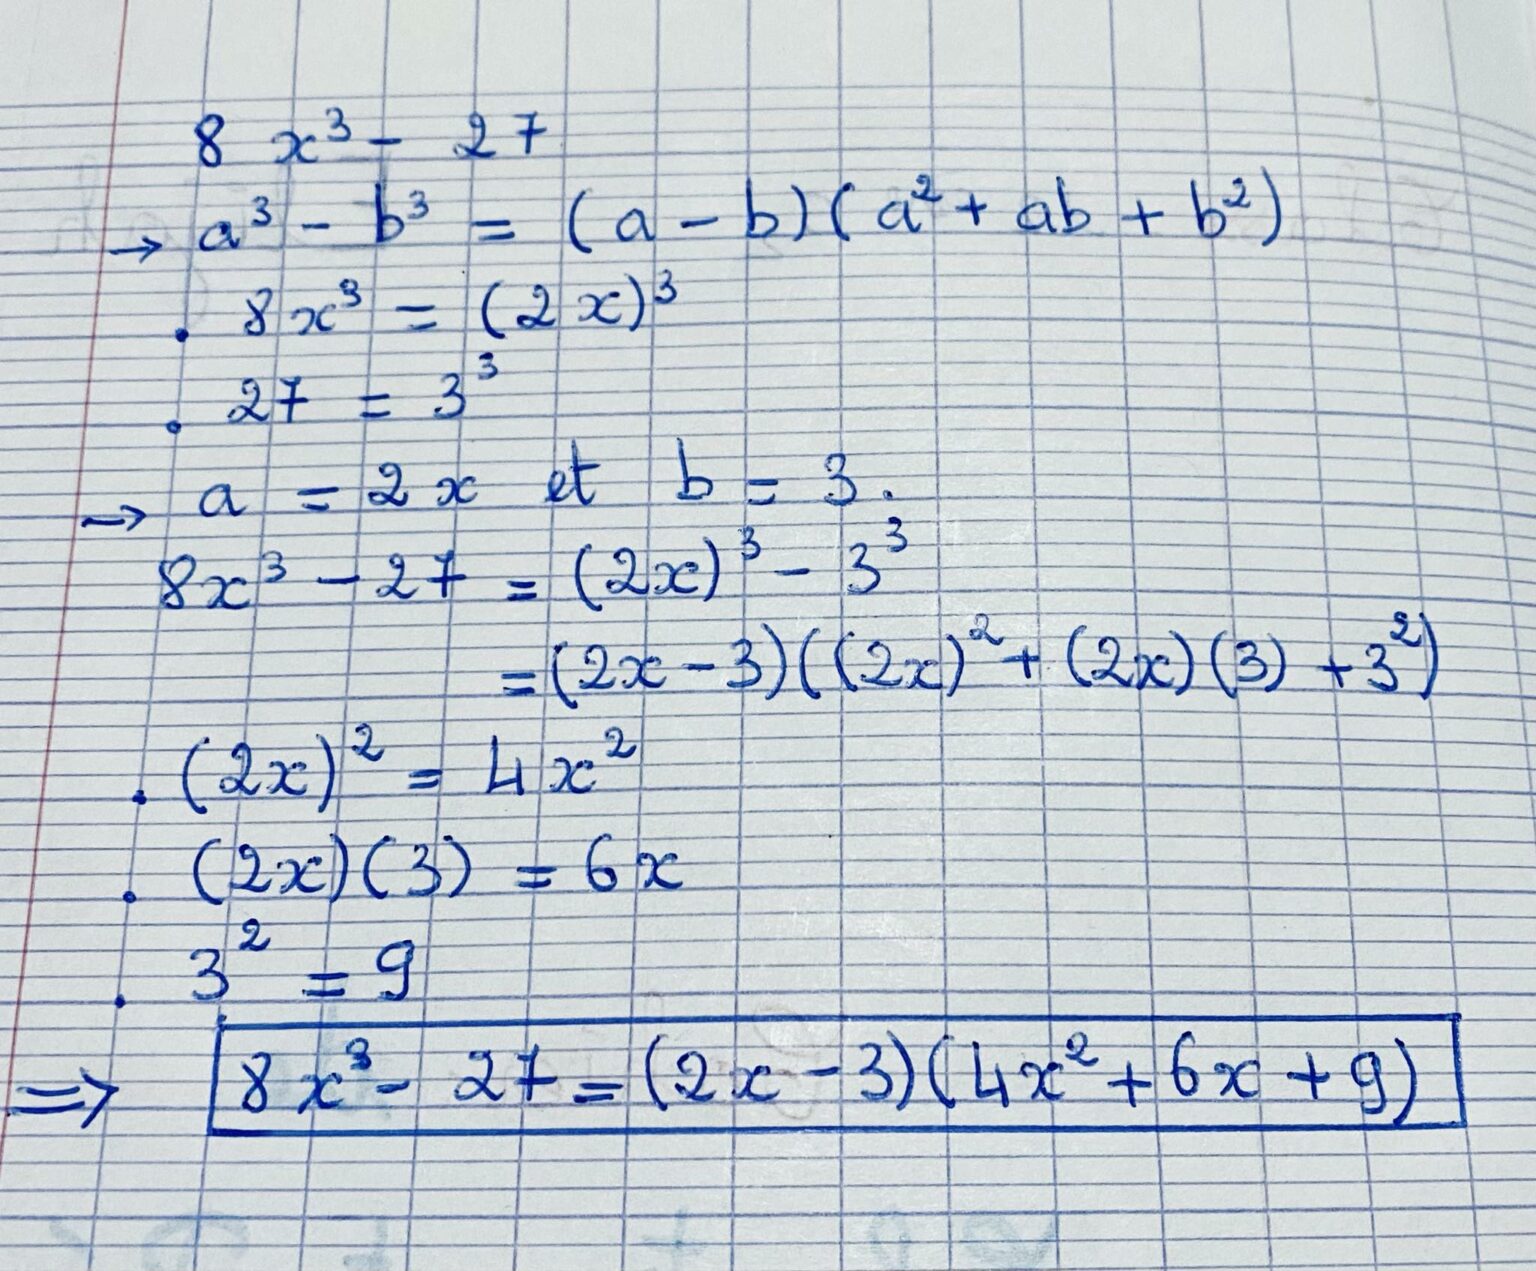 8 x³ - 27
→ a³ - b³ = (a - b)(a² + ab + b²)
. 8x³ = (2x)³
. 27 = 3³
→ a = 2x et b = 3.
8x³ - 27 = (2x)³ - 3³
= (2x - 3)((2x)² + (2x)(3) + 3²)
. (2x)² = 4x²
. (2x)(3) = 6x
. 3² = 9
⇒ 8x³ - 27 = (2x - 3)(4x² + 6x + 9)